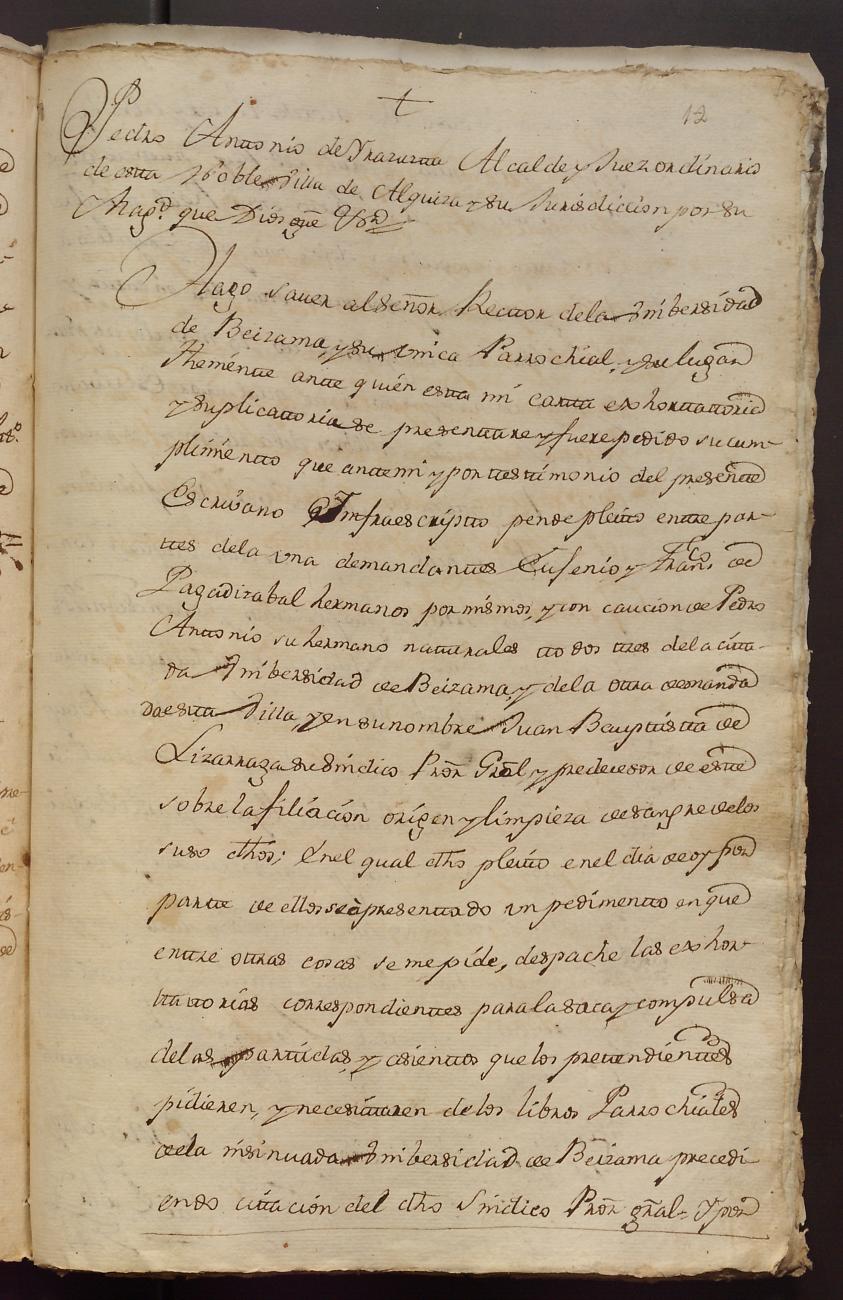 +
12
Pedro Antonio de Yrazusta Alcalde y Juez ordinario
de esta Noble Villa de Alquiza y su Jurisdiccion por su
Magd. que Dios gue &a
Hago saver al señor Rector dela Vnibersidad
de Beizama, y su vnica Parrochial, y su lugar
theniente ante quien esta mi carta exhortatoria
y suplicatoria se presentare y fuere pedido su cum-
plimiento que ante mi y por testimonio del presente
Escrivano Infraescripto pende pleito entre par-
tes dela vna demandantes Eufenio y Franco. de
Pagadizabal hermanos por mismos, y con caucion de Pedro
Antonio su hermano naturales todos tres dela cita-
da Vnibersidad de Beizama, y dela otra demanda
da esta Villa, y en su nombre Juan Bauptista de
Lizarraga su sindico Pror. Gral y predecesor de este
sobre la filiacion origen y limpieza de sangre delos
suso dhos; Enel qual dho pleito en el dia de oy por
parte de ellos se à presentado vn pedimento en que
entre otras cosas se me pide, despache las exhor-
tatorias correspondientes para la saca y compulsa
delas partidas, y asientos que los pretendientes
pidieren, y necesitaren delos libros Parrochiales
dela insinuada Vnibersidad de Beizama precedi-
endo citacion del dho Sindico Pror. gral= Y por